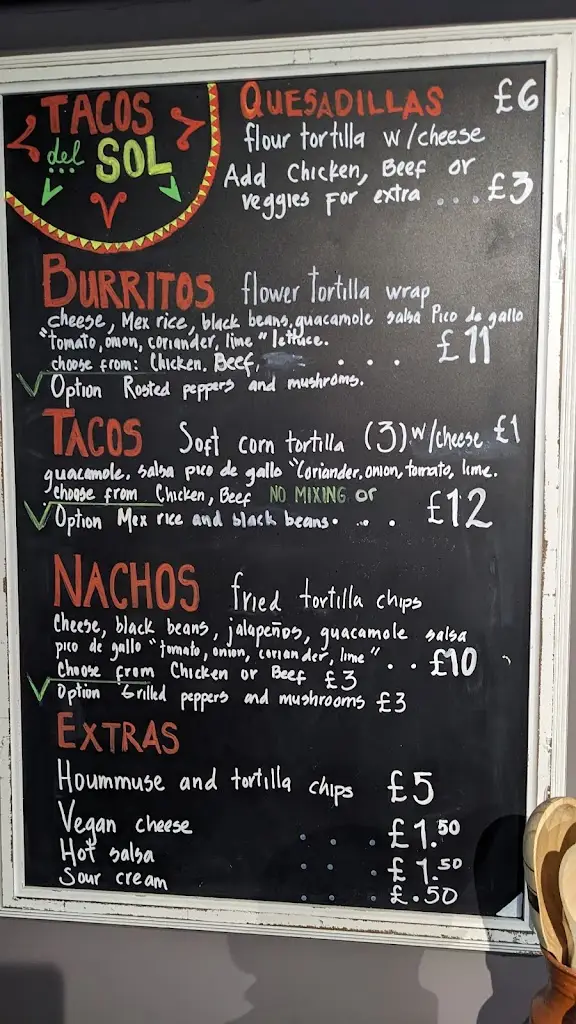 TACOS
del SOL
QUESADILLAS £6
flour tortilla w/cheese
Add Chicken, Beef or
veggies for extra ... £3
BURRITOS flower tortilla wrap
cheese, Mex rice, black beans, guacamole salsa Pico de gallo
"tomato, onion, coriander, lime" lettuce.
choose from: Chicken. Beef, . . . £11
V Option Rosted peppers and mushroms.
TACOS Soft corn tortilla (3) w/cheese £1
guacamole, salsa pico de gallo "Coriander, onion, tomato, lime.
choose from Chicken, Beef NO MIXING or
V Option Mex rice and black beans. . . . £12
NACHOS fried tortilla chips
Cheese, black beans, jalapeños, guacamole salsa
pico de gallo "tomato, onion, coriander, lime" . . £10
Choose from Chicken or Beef £3
V Option Grilled peppers and mushrooms £3
EXTRAS
Hoummuse and tortilla chips £5
Vegan cheese . . . £1.50
Hot salsa . . . £1.50
Sour cream . . . £.50